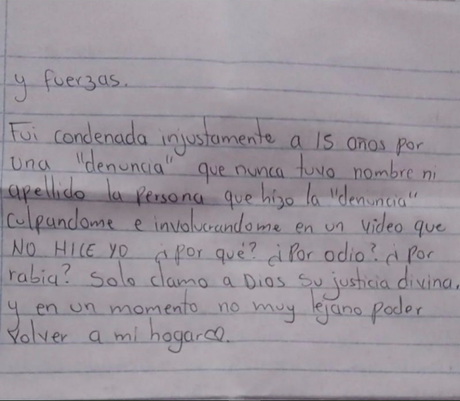 y fuerzas.
Fui condenada injustamente a 15 años por
una "denuncia" que nunca tuvo nombre ni
apellido la persona que hizo la "denuncia"
culpandome e involucrandome en un video que
NO HICE YO ¿por qué? ¿Por odio? ¿Por
rabia? Solo clamo a Dios su justicia divina,
y en un momento no muy lejano poder
volver a mi hogar.